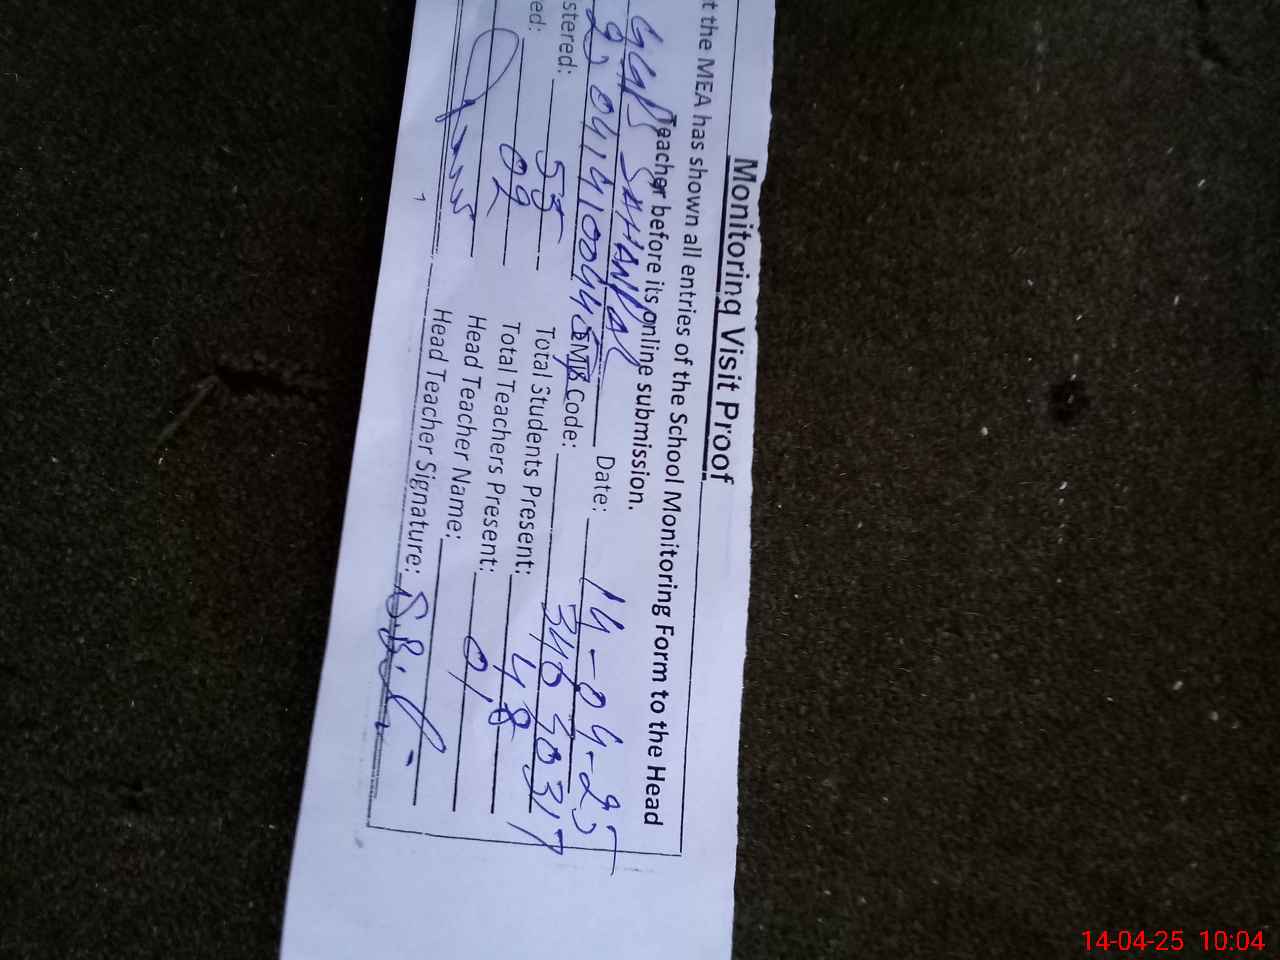 Monitoring Visit Proof
t the MEA has shown all entries of the School Monitoring Form to the Head
Teacher before its online submission.
GGPS Date: 14-04-25
EMIS Code: 34630317
stered: 55 Total Students Present: 48
ed: 02 Total Teachers Present: 01
Head Teacher Name:
Head Teacher Signature:
14-04-25 10:04